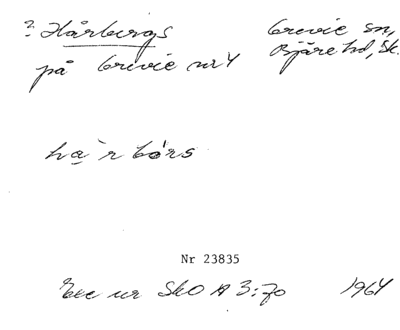 ? Hårbergs Grevie sn,
på Grevie nr 4 Bjäre hd, Sk.
ha`r bórs
Nr 23835
Exc ur SkO A 3:70 1964